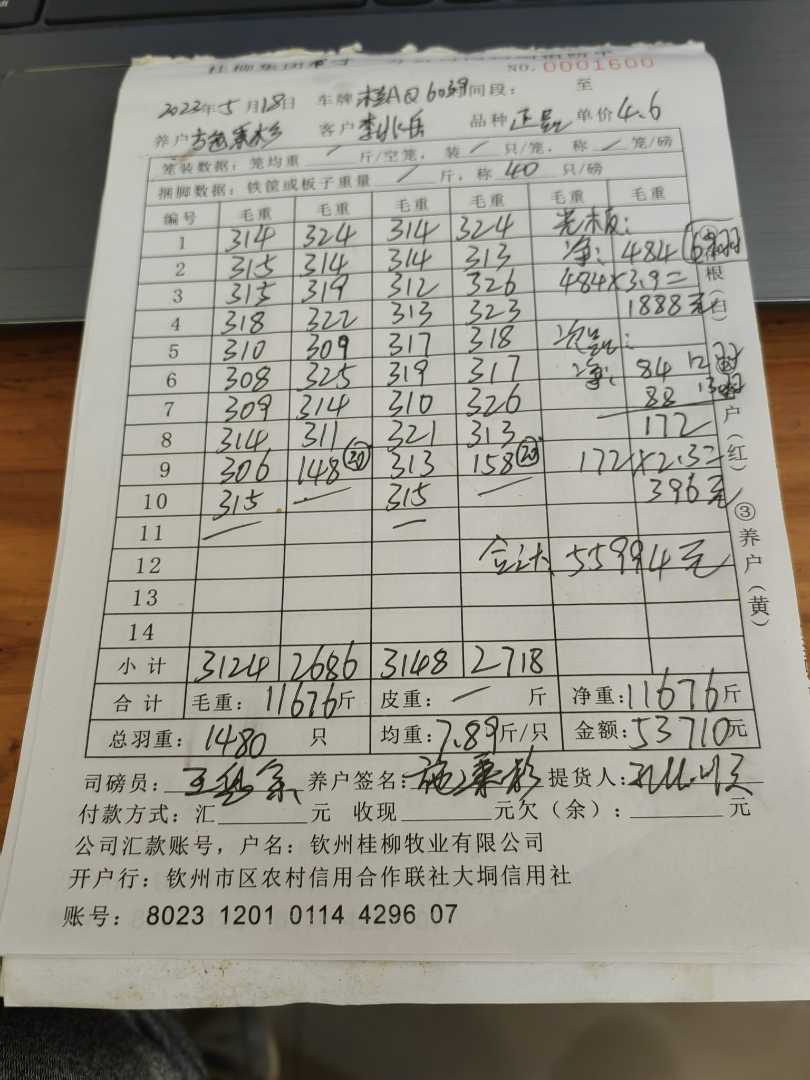 NO. 0001600
2022年5月18日 车牌 桂AQ6039 间段： 至
养户 客户 品种 正品 单价 4.6
笼装数据：笼均重 / 斤/空笼，装 / 只/笼，称 / 笼/磅
捆脚数据：铁筐或板子重量 / 斤，称 40 只/磅
编号 毛重 毛重 毛重 毛重 毛重 毛重
1 314 324 314 324 光板：
2 315 314 314 313 净：484
3 315 319 312 326 484×3.9=
4 318 322 313 323 1888元
5 310 309 317 318 次品：
6 308 325 319 317 净：84
7 309 314 310 326 88
8 314 311 321 313 172
9 306 148 ⑳ 313 158 ⑳ 172×2.3=
10 315 — 315 — 396元
11 — —
12 合计：55994元
13
14
小计 3124 2686 3148 2718
合计 毛重：11676斤 皮重：— 斤 净重：11676斤
总羽重：1480 只 均重：7.89斤/只 金额：53710元
司磅员： 养户签名：施秉杉 提货人：
付款方式：汇 元 收现 元欠（余）： 元
公司汇款账号，户名：钦州桂柳牧业有限公司
开户行：钦州市区农村信用合作联社大垌信用社
账号：8023 1201 0114 4296 07
根（白）
户（红）
③养户（黄）